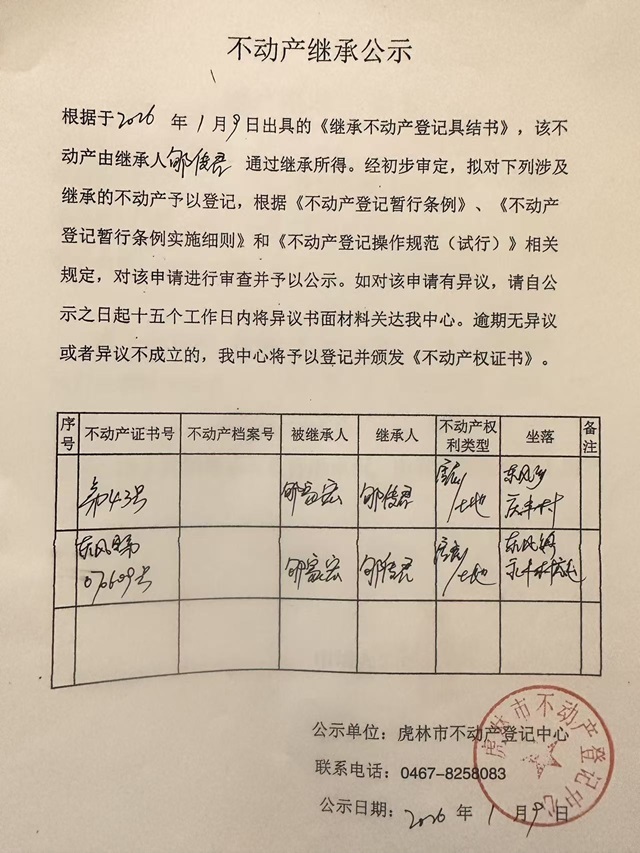 不动产继承公示
根据于2026年1月9日出具的《继承不动产登记具结书》，该不
动产由继承人邹俊君 通过继承所得。经初步审定，拟对下列涉及
继承的不动产予以登记，根据《不动产登记暂行条例》、《不动产
登记暂行条例实施细则》和《不动产登记操作规范（试行）》相关
规定，对该申请进行审查并予以公示。如对该申请有异议，请自公
示之日起十五个工作日内将异议书面材料关达我中心。逾期无异议
或者异议不成立的，我中心将予以登记并颁发《不动产权证书》。
序号 不动产证书号 不动产档案号 被继承人 继承人 不动产权利类型 坐落 备注
第43号 邹富宏 邹俊君 房屋/土地 东风乡庆丰村
070609号 邹富宏 邹俊君 房屋/土地
公示单位：虎林市不动产登记中心
联系电话：0467-8258083
公示日期：2026年1月9日
虎林市不动产登记中心